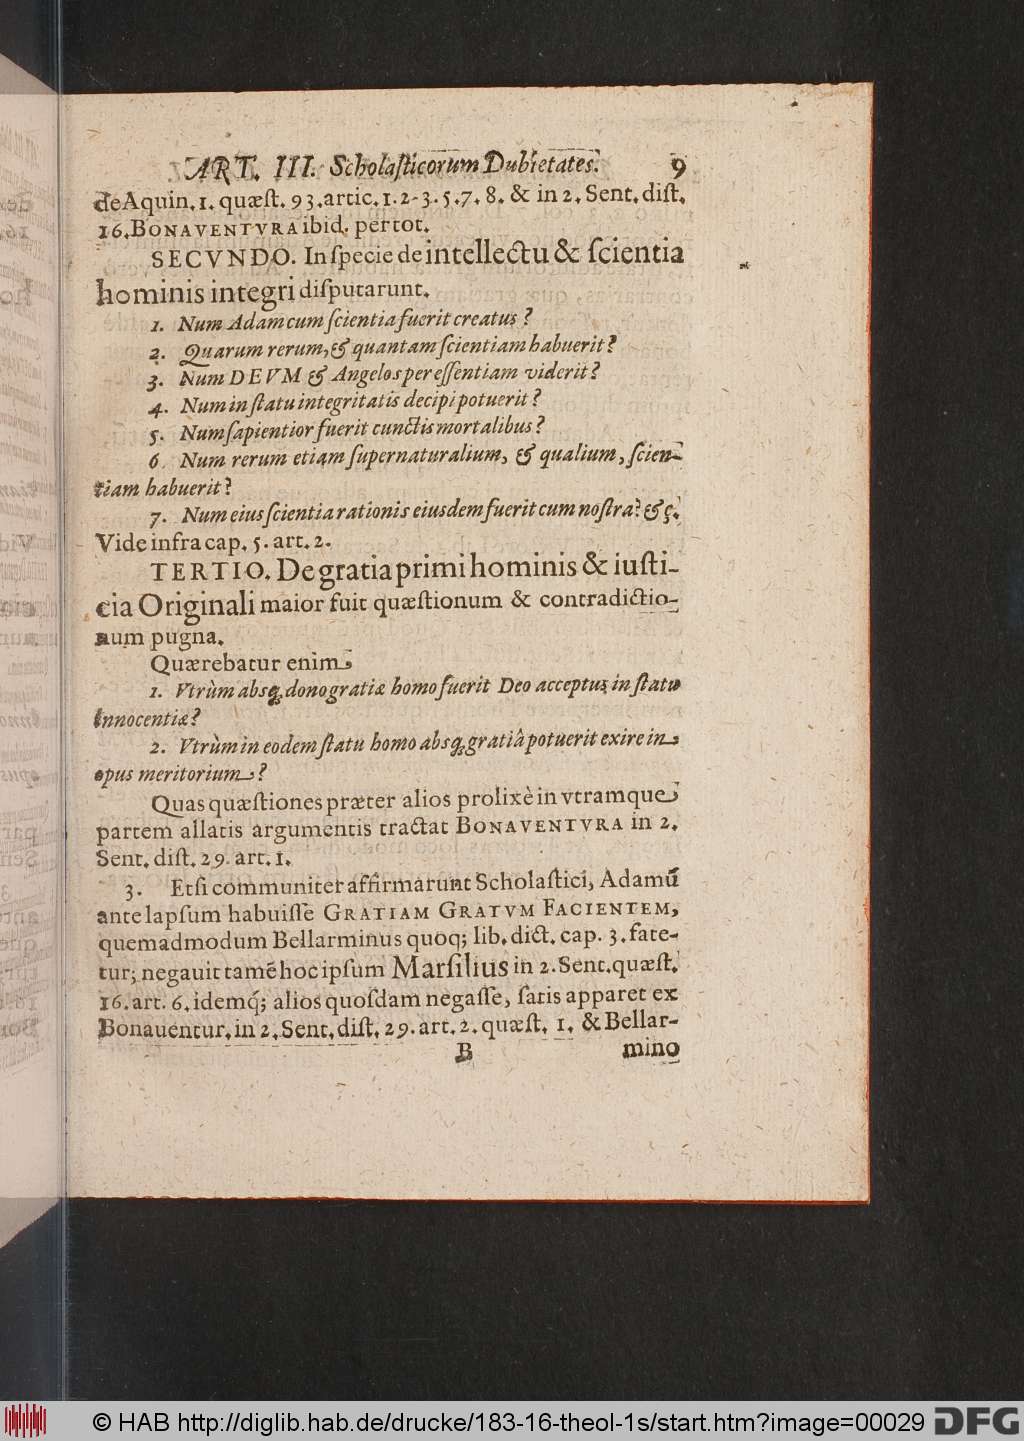 ART. III. Scholaſticorum Dubietates. 9
de Aquin. 1. quæſt. 93. artic. 1. 2. 3. 5. 7. 8. & in 2. Sent. diſt.
16. BONAVENTVRA ibid. per tot.
SECVNDO. In ſpecie de intellectu & ſcientia
hominis integri diſputarunt.
1. Num Adam cum ſcientia fuerit creatus?
2. Quarum rerum, & quantam ſcientiam habuerit?
3. Num DEVM & Angelos per eſſentiam viderit?
4. Num in ſtatu integritatis decipi potuerit?
5. Num ſapientior fuerit cunctis mortalibus?
6. Num rerum etiam ſupernaturalium, & qualium, ſcien-
tiam habuerit?
7. Num eius ſcientia rationis eiusdem fuerit cum noſtra? & ç.
Vide infra cap. 5. art. 2.
TERTIO. De gratia primi hominis & iuſti-
cia Originali maior fuit quæſtionum & contradictio-
num pugna.
Quærebatur enim
1. Vtrùm absq; dono gratiæ homo fuerit Deo acceptus in ſtatu
innocentiæ?
2. Vtrùm in eodem ſtatu homo absq; gratiâ potuerit exire in
opus meritorium?
Quas quæſtiones præter alios prolixè in vtramque
partem allatis argumentis tractat BONAVENTVRA in 2.
Sent. diſt. 29. art. 1.
3. Etſi communiter affirmarunt Scholaſtici, Adamũ
ante lapſum habuiſſe GRATIAM GRATVM FACIENTEM,
quemadmodum Bellarminus quoq; lib. dict. cap. 3. fate-
tur; negavit tamẽ hoc ipſum Marſilius in 2. Sent. quæſt.
16. art. 6. idemq́; alios quoſdam negaſſe, ſatis apparet ex
Bonauentur. in 2. Sent. diſt. 29. art. 2. quæſt. 1. & Bellar-
B mino
© HAB http://diglib.hab.de/drucke/183-16-theol-1s/start.htm?image=00029 DFG